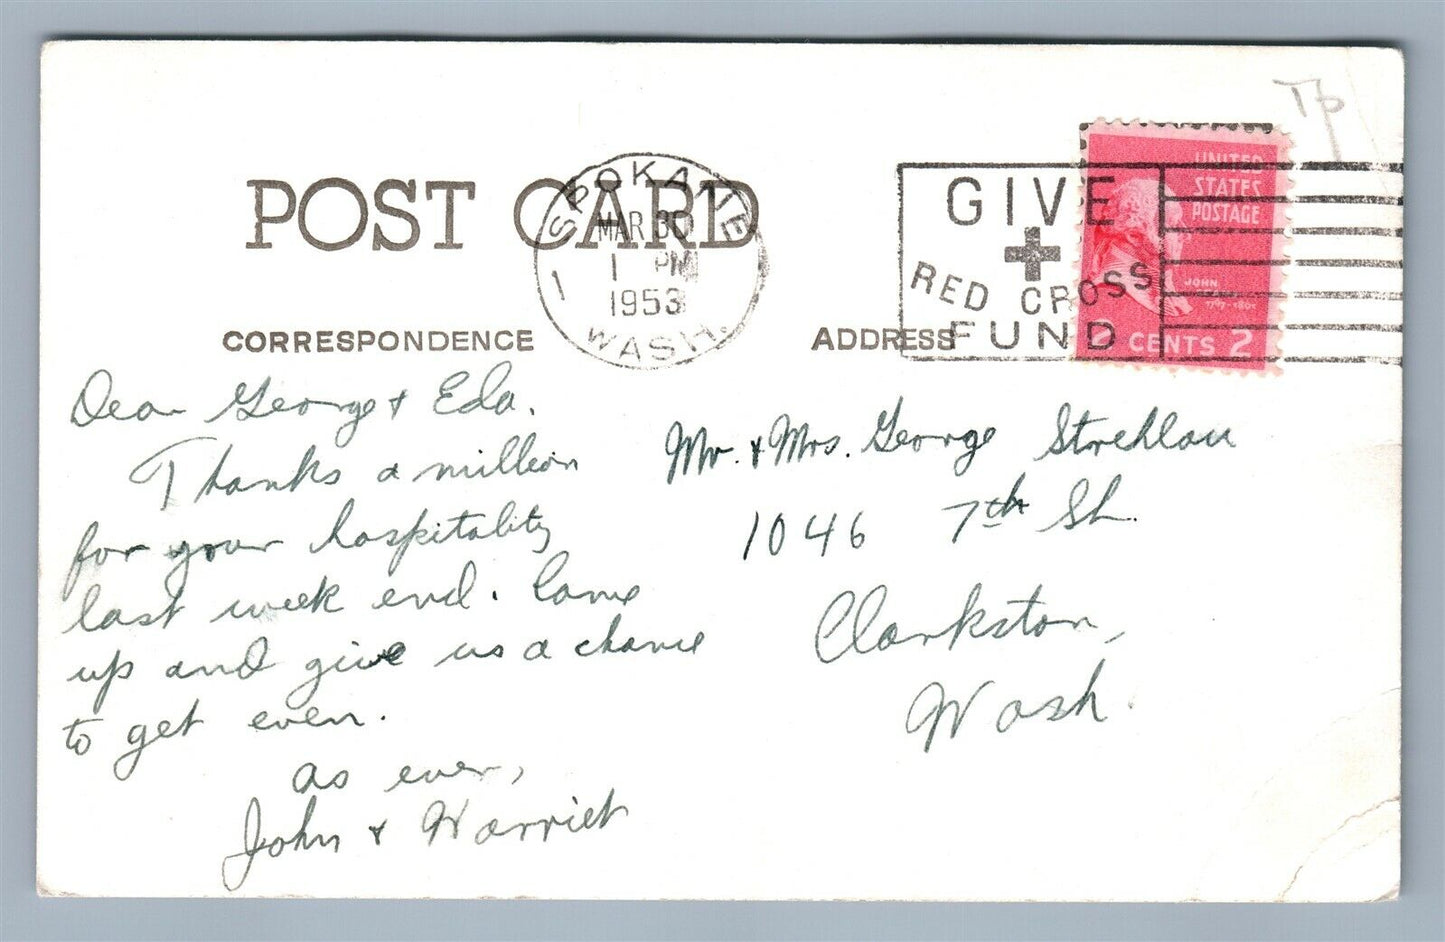 Tp
POST CARD
SPOKANE
MAR 30
1 PM
1953
WASH.
1
GIVE
RED CROSS
FUND
UNITED
STATES
POSTAGE
JOHN
1797-1801
2 CENTS 2
CORRESPONDENCE
ADDRESS
Dear George & Eda.
Thanks a million
for your hospitality
last week end. Come
up and give us a chance
to get even.
as ever,
John & Harriet
Mr. & Mrs. George Strehlau
1046 7th St.
Clarkston,
Wash.